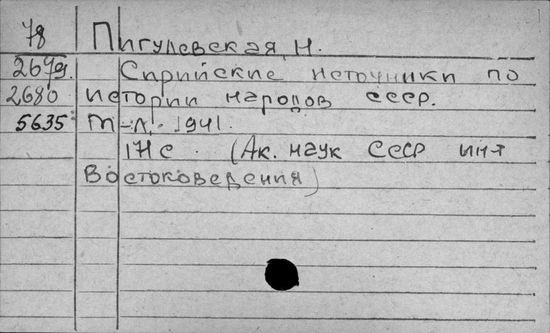 78 Пигулевская, Н.
2679. Сирийские источники по
2680 истории народов СССР.
5635 М-Л. 1941.
171 с. (Ак. наук СССР ин-т
Востоковедения)